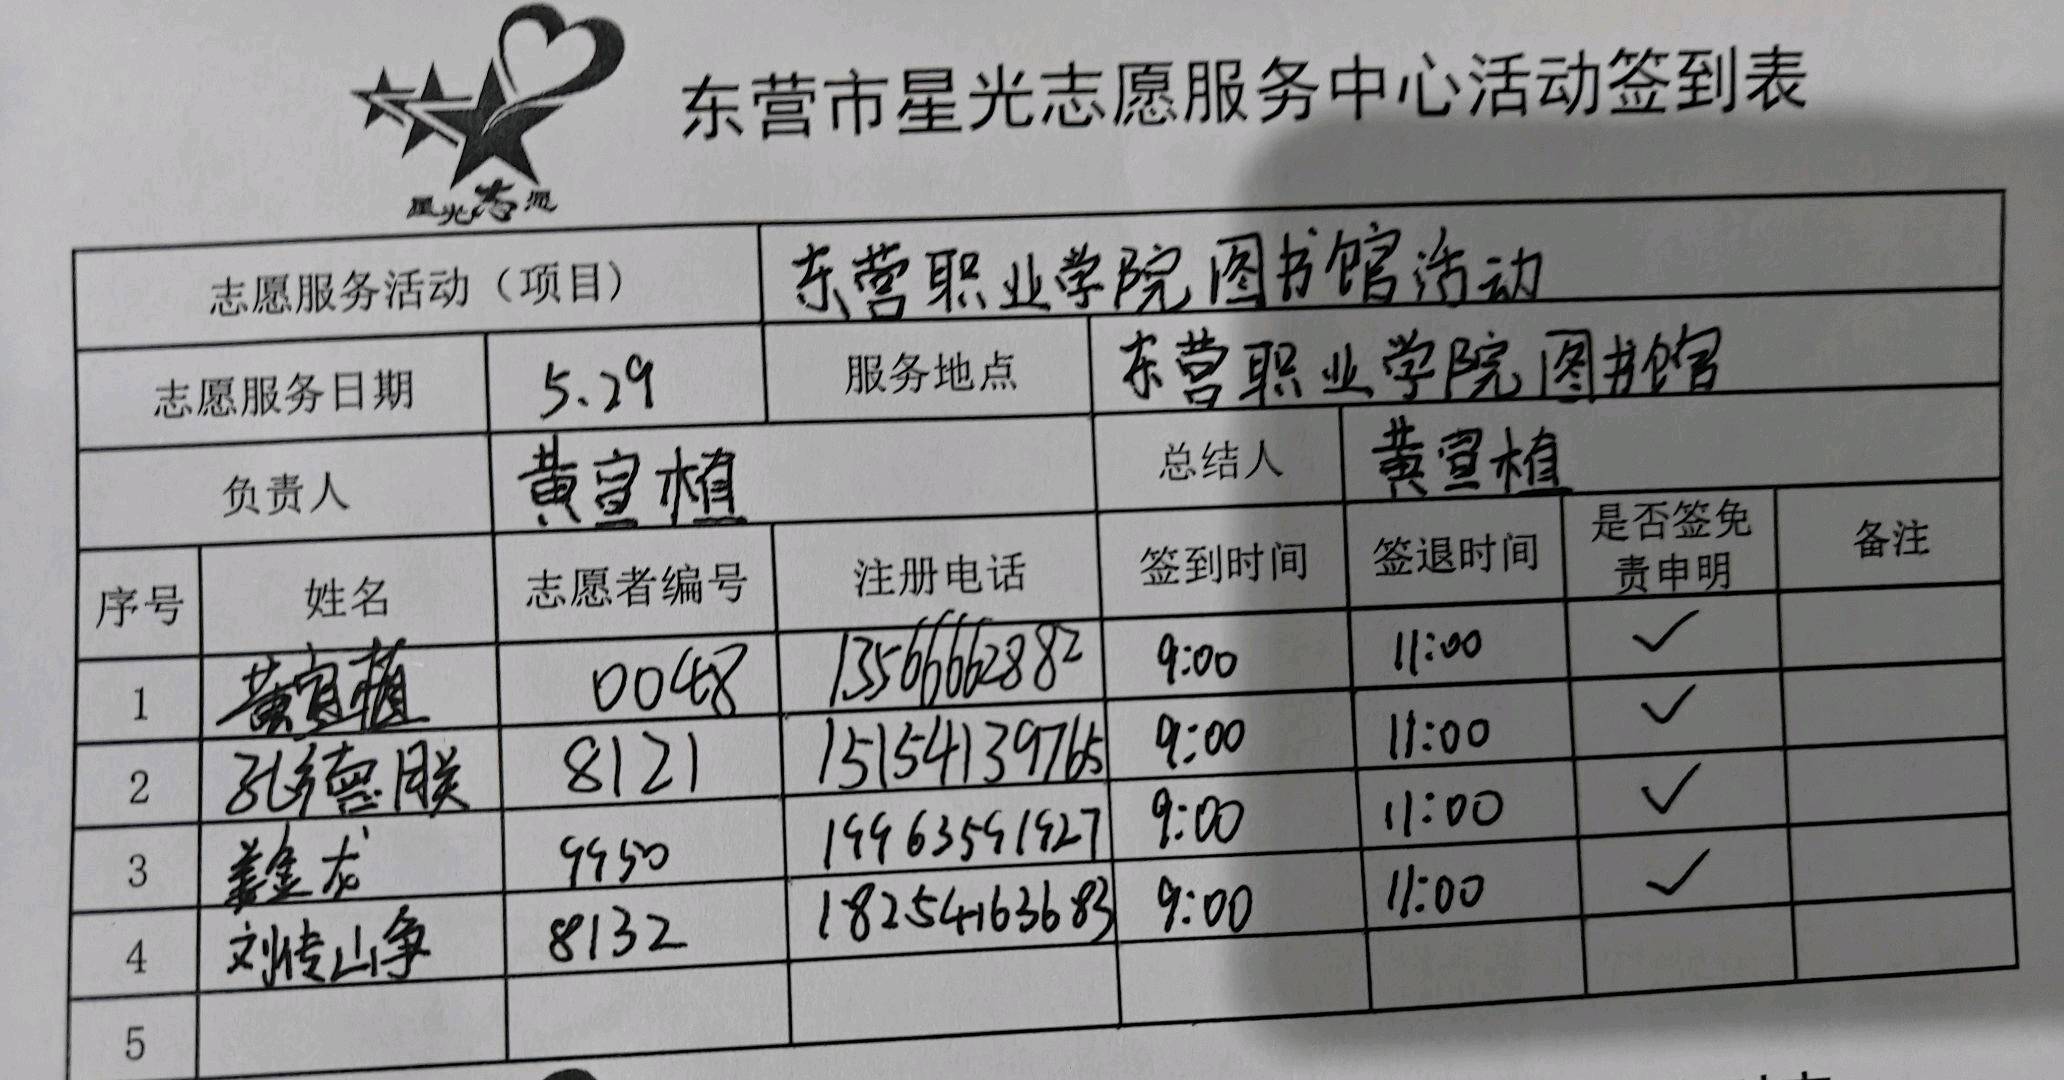 东营市星光志愿服务中心活动签到表
星光志愿
志愿服务活动（项目） 东营职业学院图书馆活动
志愿服务日期 5.29 服务地点 东营职业学院图书馆
负责人 黄宣植 总结人 黄宣植
序号 姓名 志愿者编号 注册电话 签到时间 签退时间 是否签免责申明 备注
1 黄宣植 0048 13566662882 9:00 11:00 ✓
2 孔德朕 8121 15154139765 9:00 11:00 ✓
3 姜金龙 9950 19963591927 9:00 11:00 ✓
4 刘传山争 8132 18254163683 9:00 11:00 ✓
5